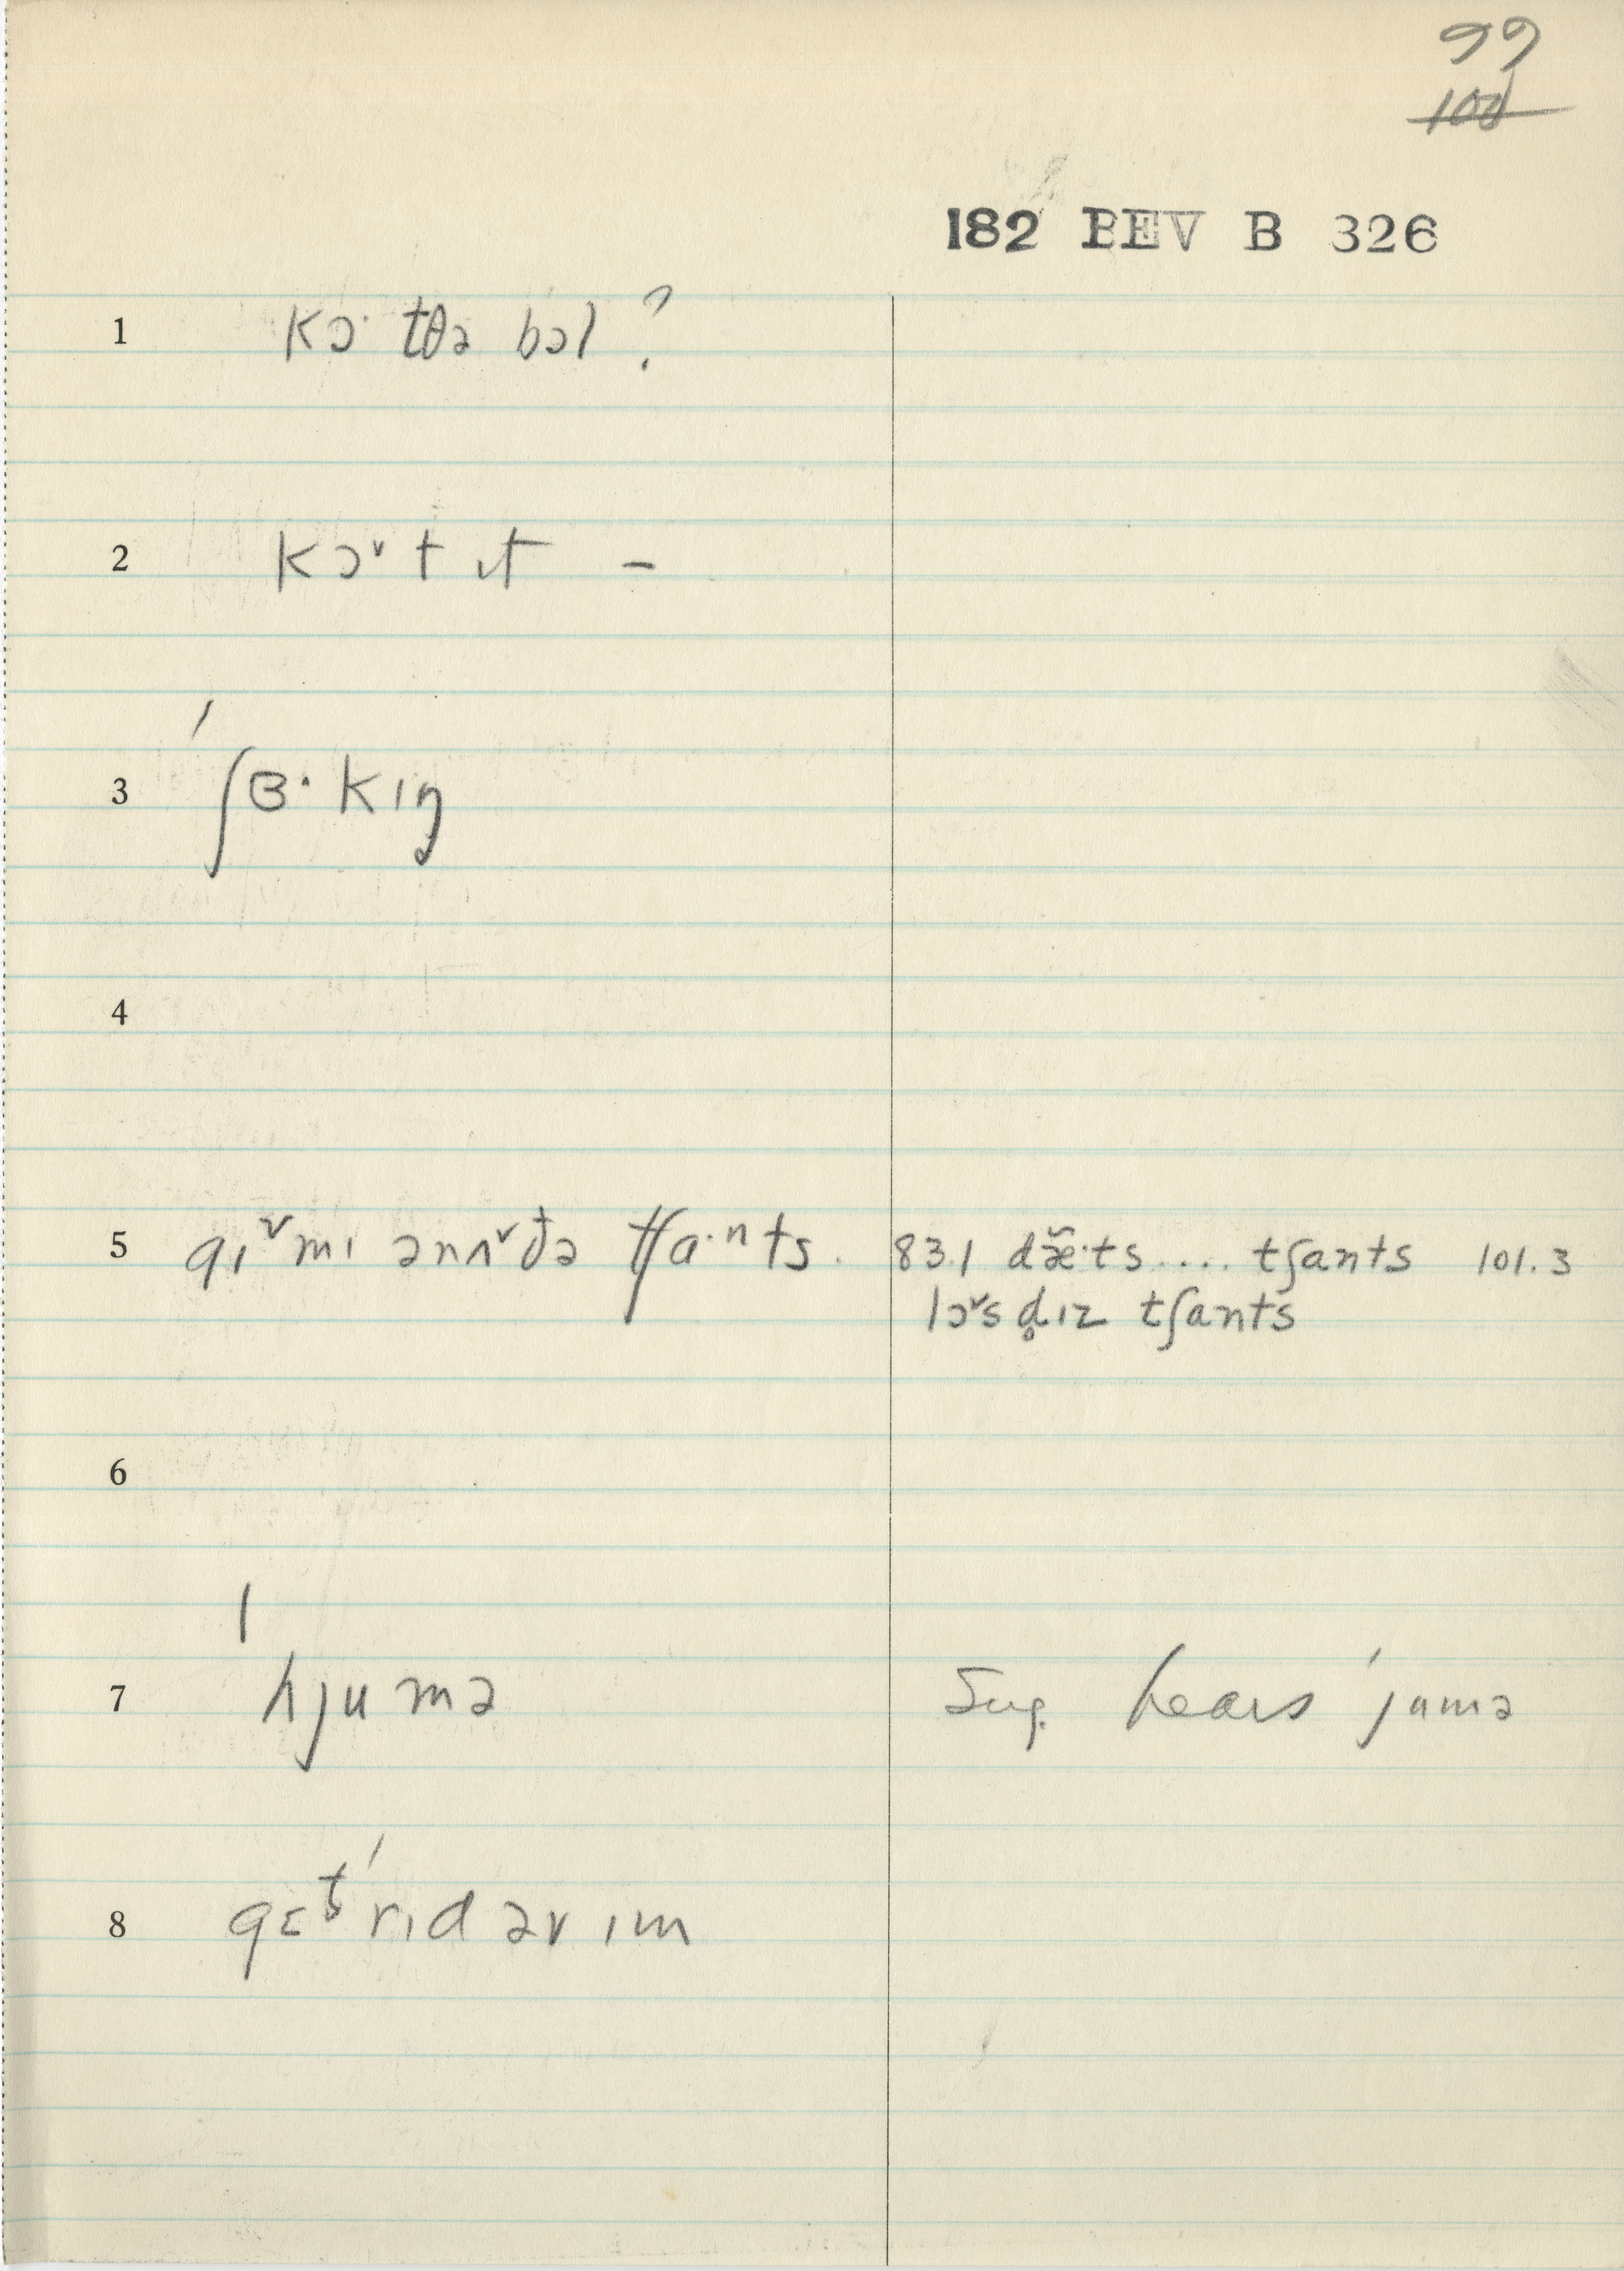 99
100
182 BEV B 326
1 kɔ· tðə bɔl ?
2 kɔˇt ɪt –
3 ˈʃɜ·kɪŋ
4
5 gɪˇmɪ ənʌˇðə tʃa·nts. 83.1 dæ̆·ts.... tʃants 101.3
lɔˇs d̥ɪz tʃants
6
7 ˈhjumə Sug. hears ˈjumə
8 gɛtˈrɪd əv ɪm